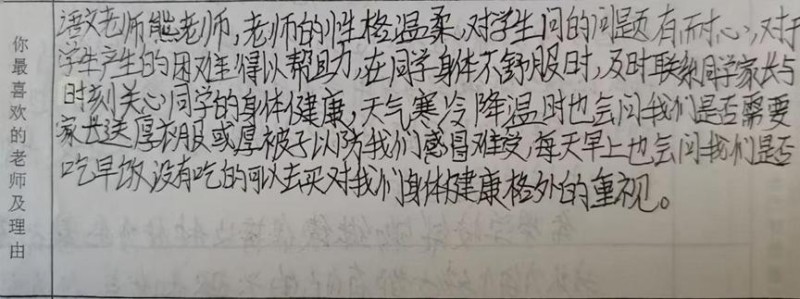 你最喜欢的老师及理由
语文老师熊老师，老师的性格温柔，对学生问的问题有耐心，对于
学生产生的困难得以帮助，在同学身体不舒服时，及时联系同学家长与
时刻关心同学的身体健康，天气寒冷降温时也会问我们是否需要
家长送厚衣服或厚被子以防我们感冒难受，每天早上也会问我们是否
吃早饭，没有吃的可以去买对我们身体健康格外的重视。